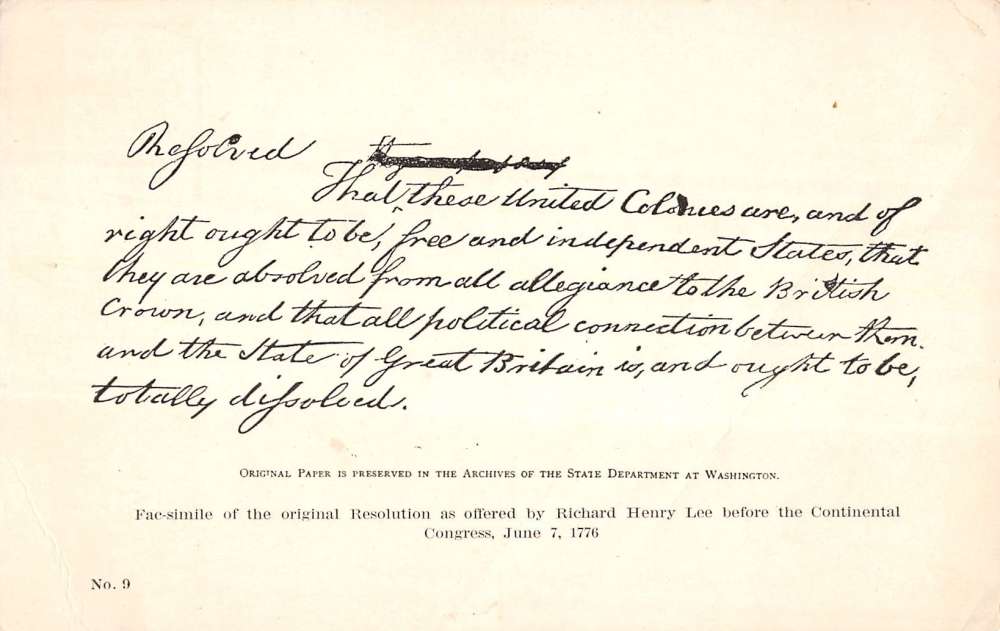 Resolved
That these United Colonies are, and of
right ought to be, free and independent States, that
they are absolved from all allegiance to the British
Crown, and that all political connection between them
and the State of Great Britain is, and ought to be,
totally dissolved.
ORIGINAL PAPER IS PRESERVED IN THE ARCHIVES OF THE STATE DEPARTMENT AT WASHINGTON.
Fac-simile of the original Resolution as offered by Richard Henry Lee before the Continental
Congress, June 7, 1776
No. 9